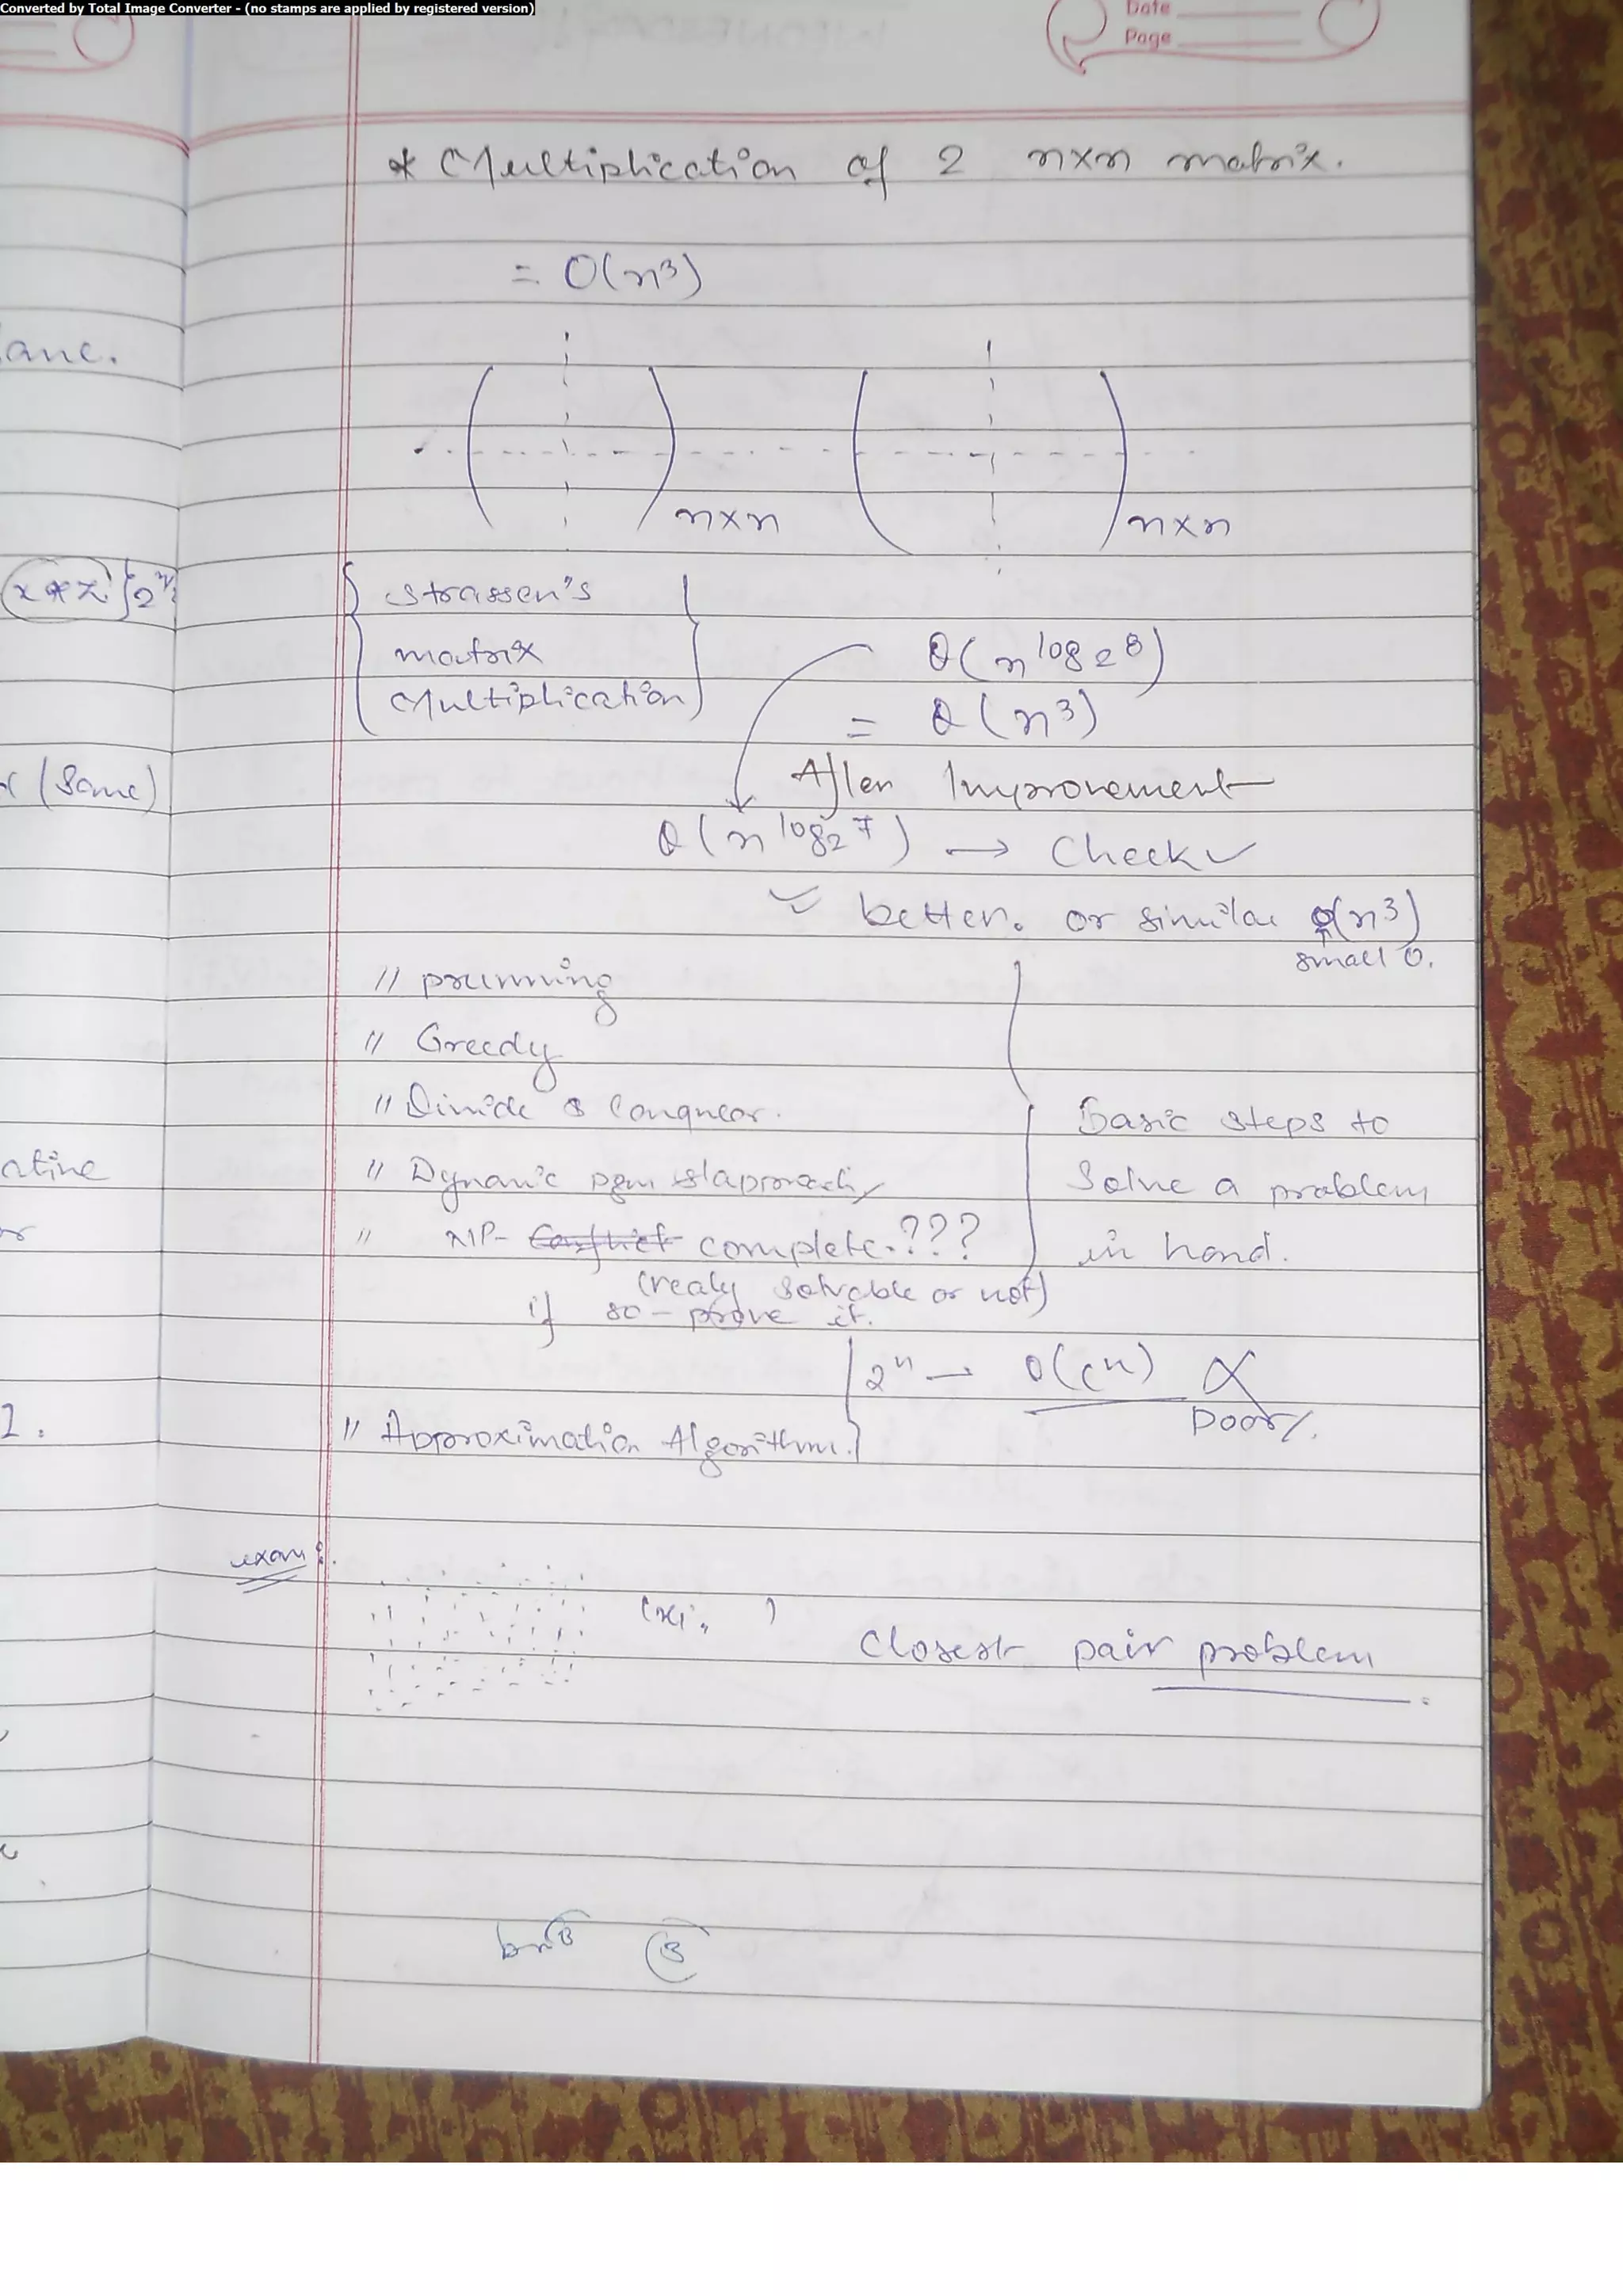 Converted by Total Image Converter - (no stamps are applied by registered version)
Date
Page
* Multiplication of 2 n×n matrix.
= O(n³)
n×n n×n
ane.
x * x } 2
Strassen's
matrix
Multiplication
θ(n^log₂8)
= θ(n³)
(Same)
After Improvement
θ(n^log₂7) → Check ✓
≃ better. or similar o(n³)
small o.
// prunning
// Greedy
// Divide & Conquear.
// Dynamic pgm
// NP- complete.???
(realy solvable or not)
if so - prove it.
Basic steps to
Solve a problem
in hand.
ative
or
2ⁿ → O(cⁿ)
poor
1.
// Approximation Algorithm.
exam:
(x₁, )
Closest pair problem
3